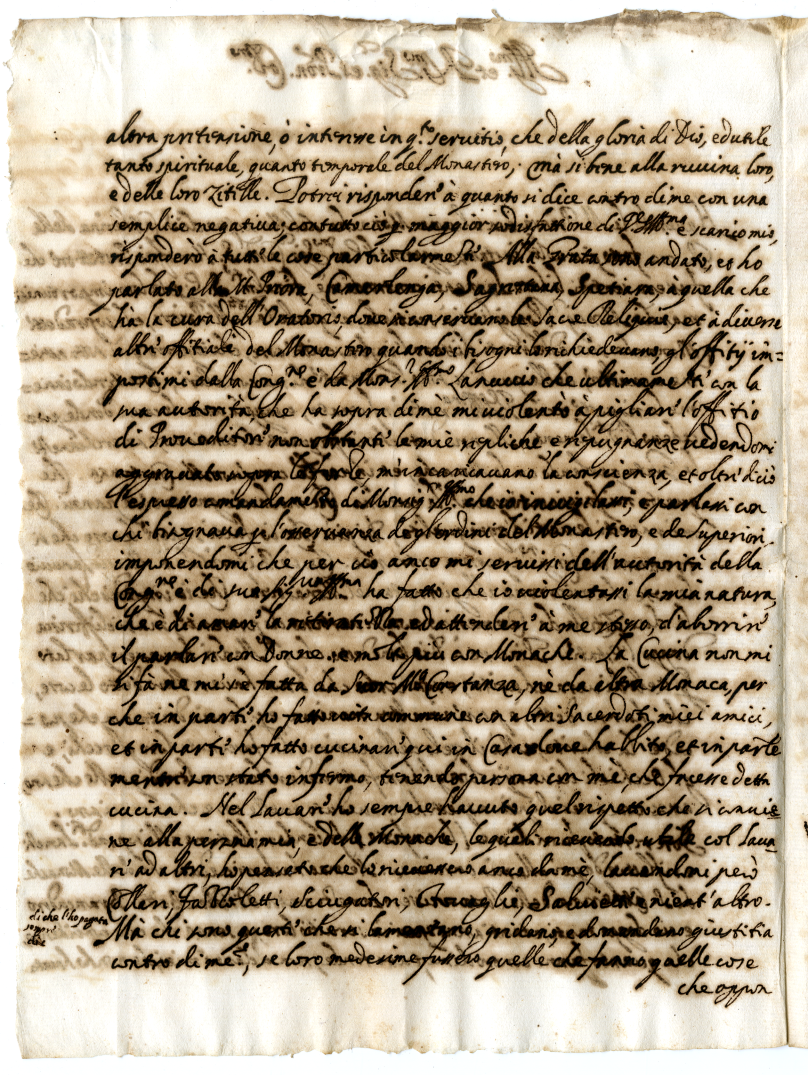 altra pretensione, ò interesse in q.to servitio, che della gloria di Dio, ed utile
tanto spirituale, quanto temporale del Monastero; mà si bene alla ruvina loro,
e delle loro Zitelle. Potrei risponder' à quanto si dice contro di me con una
semplice negativa; contutto ciò p. maggior sodisfattione di V.S. Ill.ma e scarico mio,
risponderò à tutte le cose particolarmente. Alla Grata sono andato, et ho
parlato alla M. Priora, Camerlenga, Sagristana, Spetiara, à quella che
hà la cura dell'Oratorio dove si conservano le Sacre Reliquie, et à diverse
altr'offitiale del Monastero quando i bisogni lo richiedevano, gl'offitij im=
postimi dalla Cong.ne è da Mons.r Ill.mo Lanuccio che ultimamente con la
sua autorità, che ha sopra di mè mi violentò à pigliar' l'offitio
di Proveditor' non ostanti le mie repliche e ripugnanze vedendomi
aggravato sopra le forze, m'incaricavano la conscienza, et oltr'à ciò
l'espresso comandamento di Monsig.r Ill.mo che io invigilassi, e parlassi con
chi bisognava p. l'osservanza degl'ordini del Monastero, e de Superiori,
imponendomi che per ciò anco mi servissi dell'autorità della
Cong.ne e di sua Sig.ria Ill.ma ha fatto che io violentassi la mia natura,
che è di amar' la ritiratezza ed attender' à me stesso, d'aborrir'
il parlar' con Donne, e molto più con Monache. La Cucina non mi
si fà ne mi s'è fatta da Suor M.a Costanza, nè da altra Monaca, per
che in parte ho fatto vita commune con altri Sacerdoti miei amici,
et in parte ho fatto cucinar' qui in Casa dove habbito, et in parte
mentre son stato infermo, tenendo persona con mè, che facesse detta
cucina. Nel Lavar' ho sempre havuto quel rispetto che si convie
ne alla persona mia, e delle Monache, le quali ricevendo utile col Lava
r' ad altri, ho pensato che lo ricevessero anco da mè, lavandomi però
Collari, Fazzoletti, Sciugatori, Tovaglie, Salviette e nient'altro.
di che l'ho pagate
sempre
Mà chi sono queste che si lamentano, gridano, e domandano giustitia
contro di me, se loro medesime fussero quelle che fanno quelle cose
che oppon